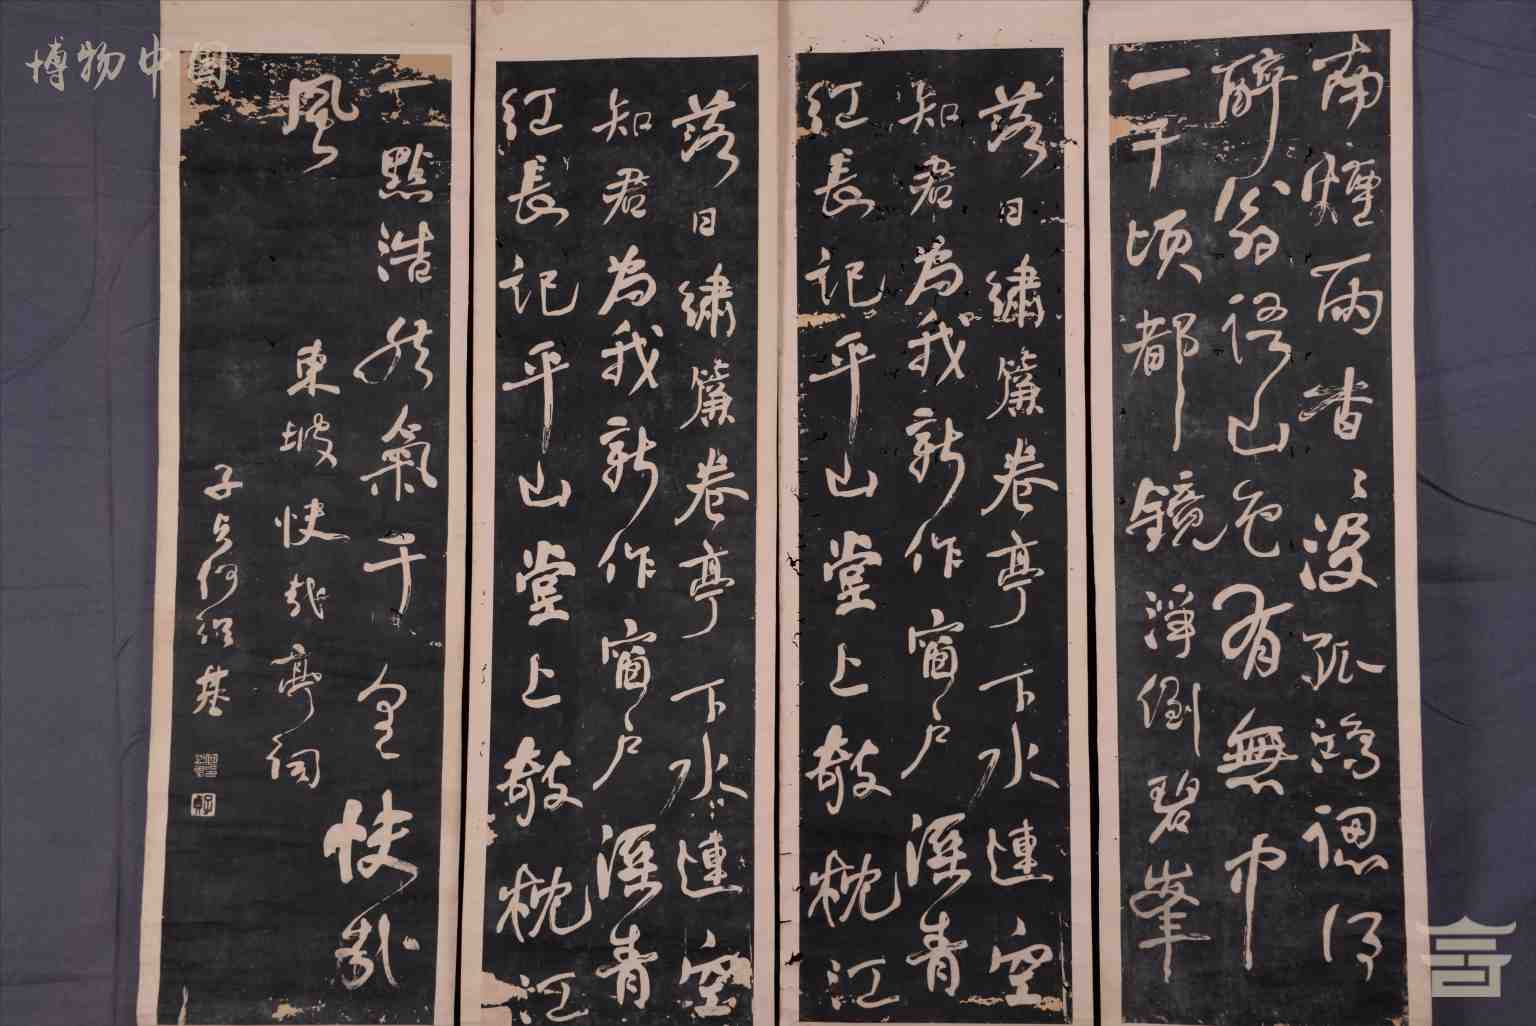 南煙雨杳〻没孤鴻認得
醉翁語山色有無中
一千頃都鏡淨倒碧峯
落日繡簾卷亭下水連空
知君為我新作窗户濕青
紅長記平山堂上欹枕江
落日繡簾卷亭下水連空
知君為我新作窗户濕青
紅長記平山堂上欹枕江
一點浩然氣千里快哉
風
東坡快哉亭詞
子貞何紹基
博物中国